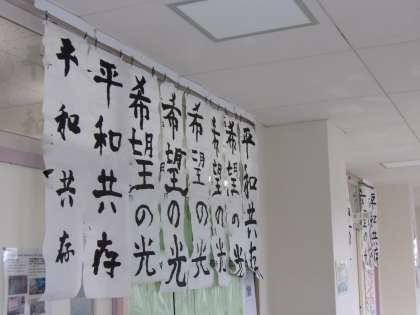 平和共存
平和共存
希望の光
希望の光
希望の光
希望の光
希望の光
平和共存
平和共存